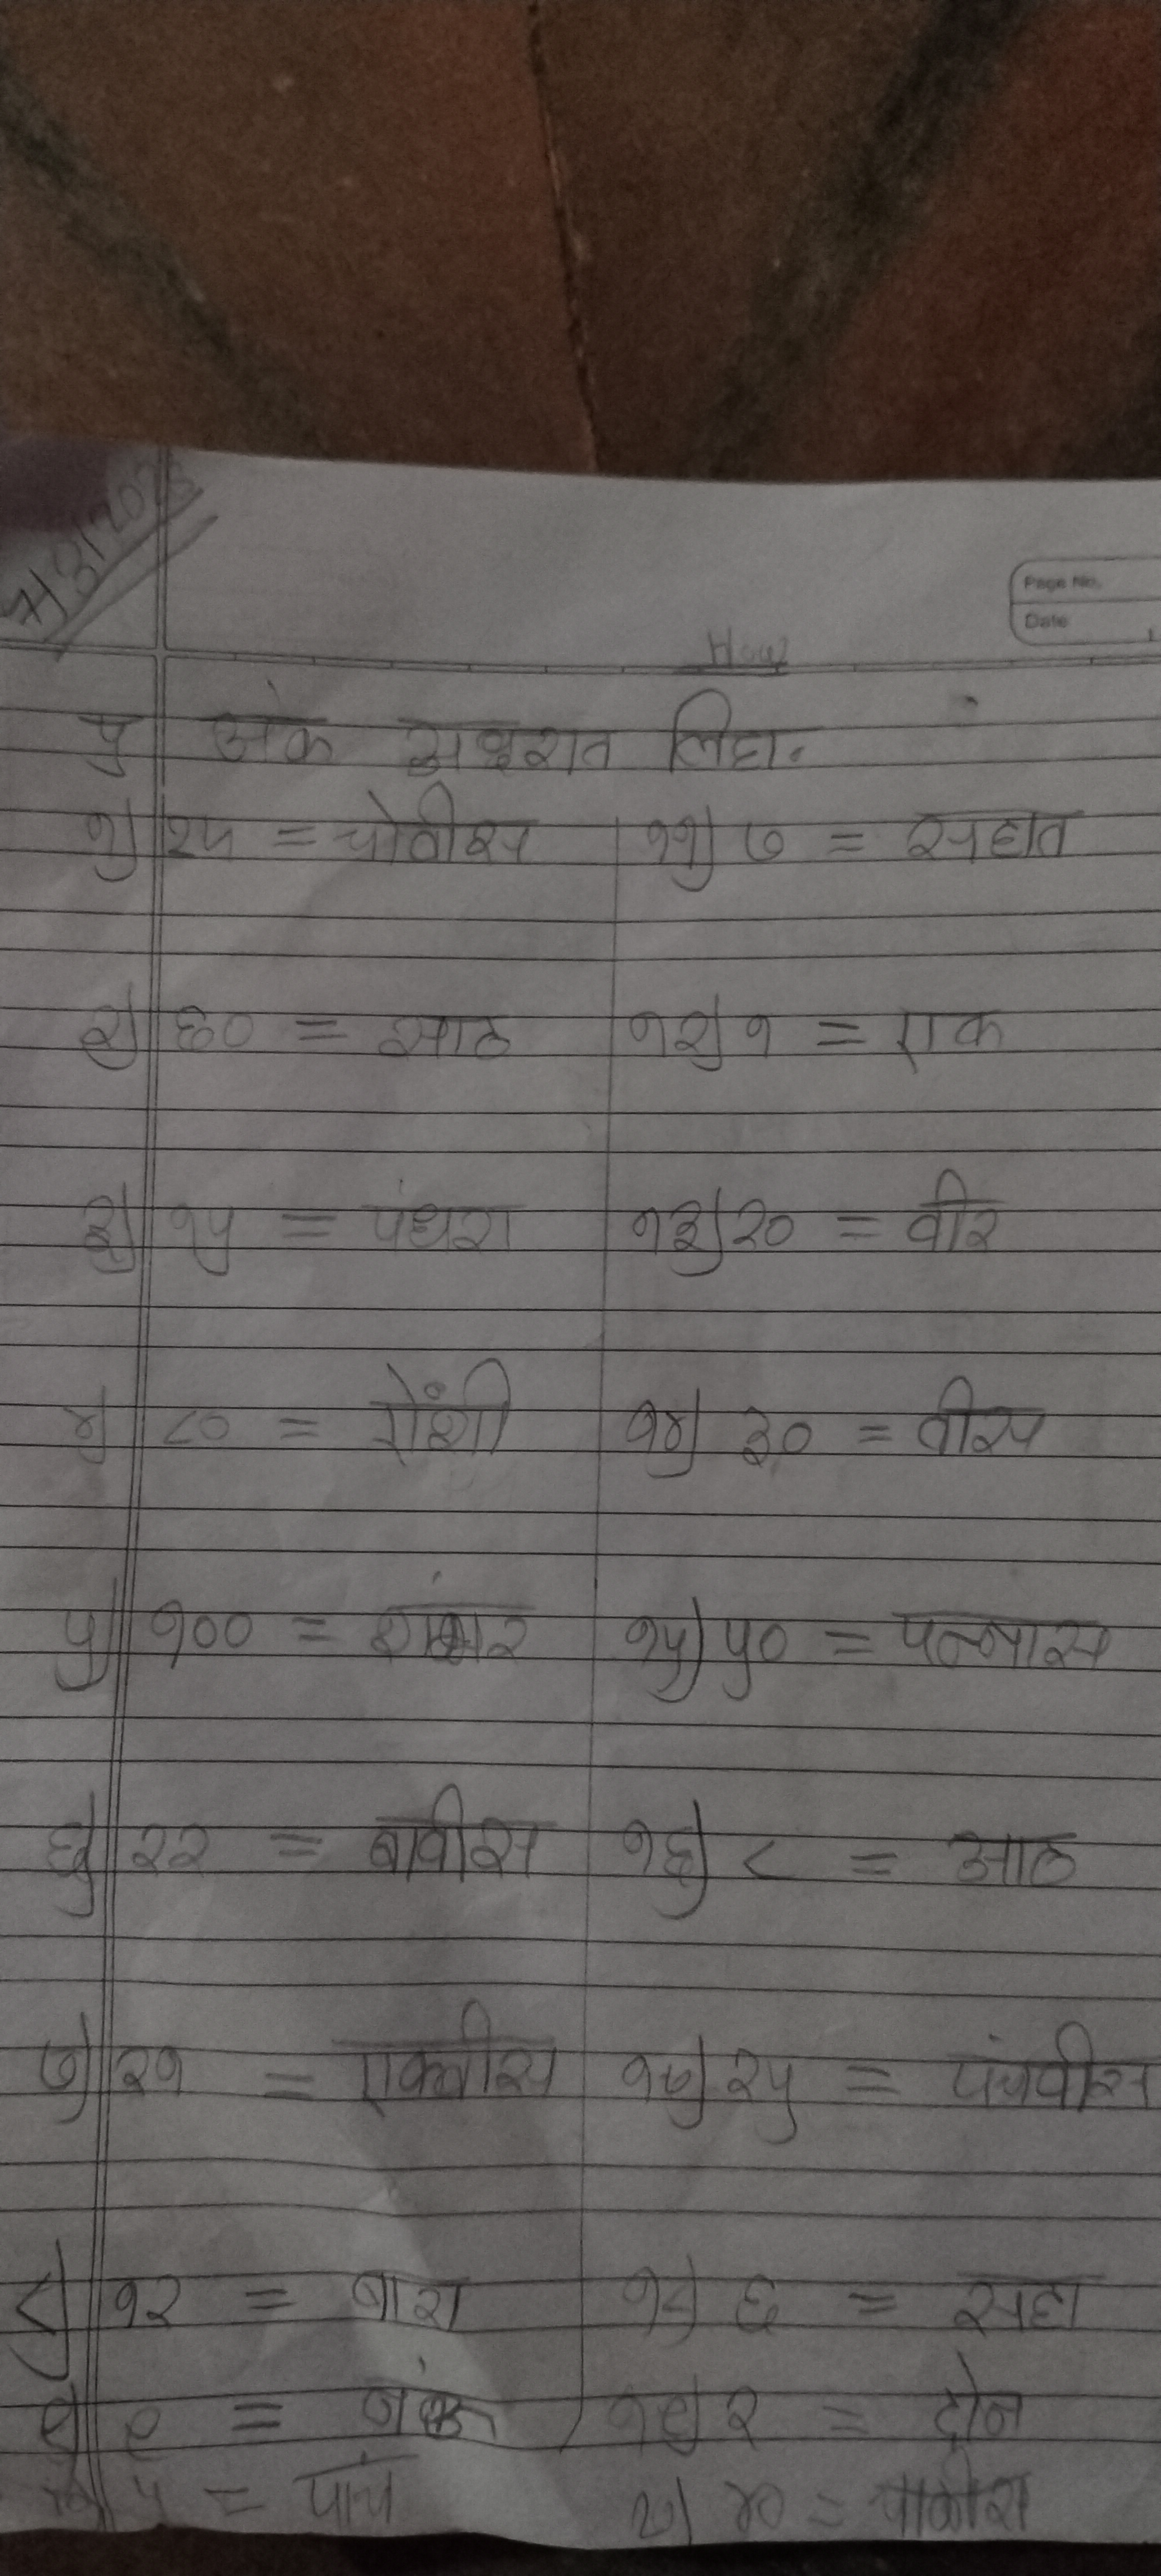 Page No.
Date
प्र अंक अक्षरात लिहा.
१) २४ = चोवीस ११) ७ = सहात
२) ६० = साठ १२) १ = एक
३) १५ = पंधरा १३) २० = वीर
४) ८० = १४) ३० = वीस
५) १०० = १५) ५० = पन्नास
६) २२ = बावीस १६) ८ = आठ
७) २१ = एकवीस १७) २५ = पंचवीस
८) १२ = बारा १८) ६ = सहा
९) ९ = १९) २ = दोन
५ = पांच ४० = चाळीस